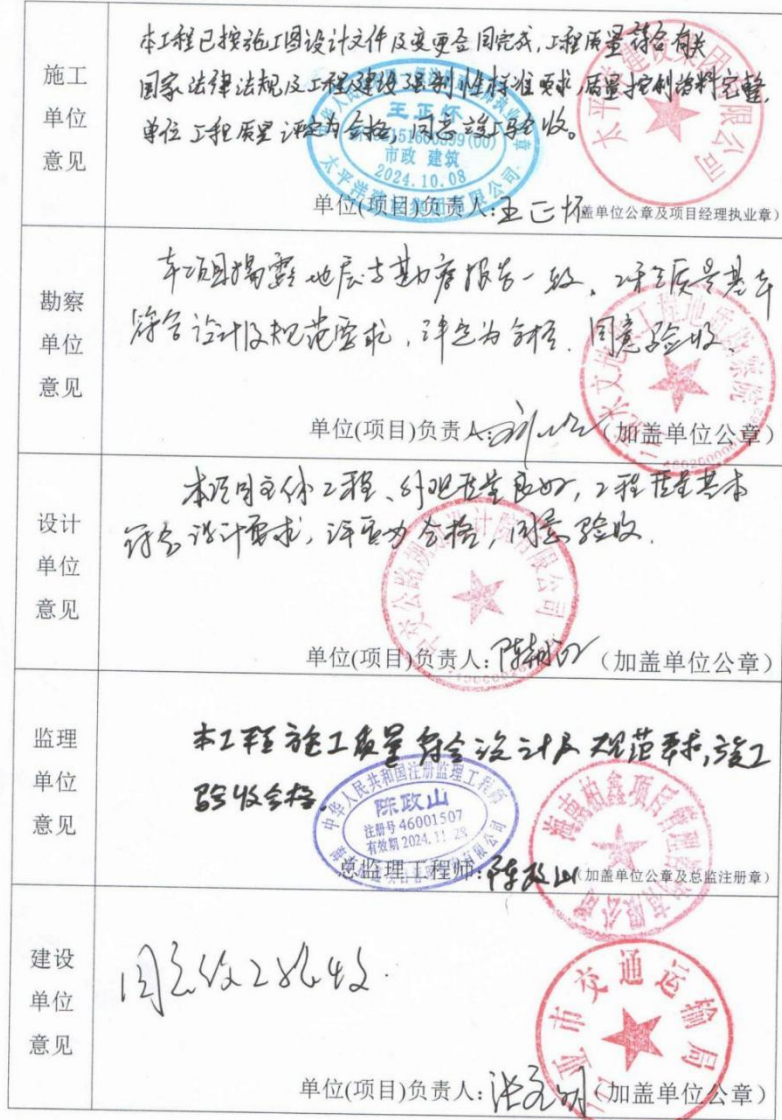 施工
单位
意见
本工程已按施工图设计文件及变更合同完成,工程质量符合有关
国家法律法规及工程建设强制性标准要求,质量控制资料完整,
单位工程质量评定为合格,同意竣工验收。
王正怀
市政 建筑
2024.10.08
太平洋建设集团有限公司
单位(项目)负责人:王正怀
(加盖单位公章及项目经理执业章)
勘察
单位
意见
本项目揭露地层与勘察报告一致,工程质量基本
符合设计及规范要求,评定为合格.同意验收.
单位(项目)负责人:
(加盖单位公章)
设计
单位
意见
本项目主体工程、外观质量良好,工程质量基本
符合设计要求,评定为合格,同意验收.
中交公路规划设计院有限公司
单位(项目)负责人:
(加盖单位公章)
监理
单位
意见
本工程施工质量符合设计及规范要求,竣工
验收合格.
中华人民共和国注册监理工程师
陈政山
注册号46001507
有效期2024.11.28
海南柏鑫项目管理
总监理工程师:陈政山
(加盖单位公章及总监注册章)
建设
单位
意见
同意竣工验收.
亚市交通运输局
单位(项目)负责人:
(加盖单位公章)